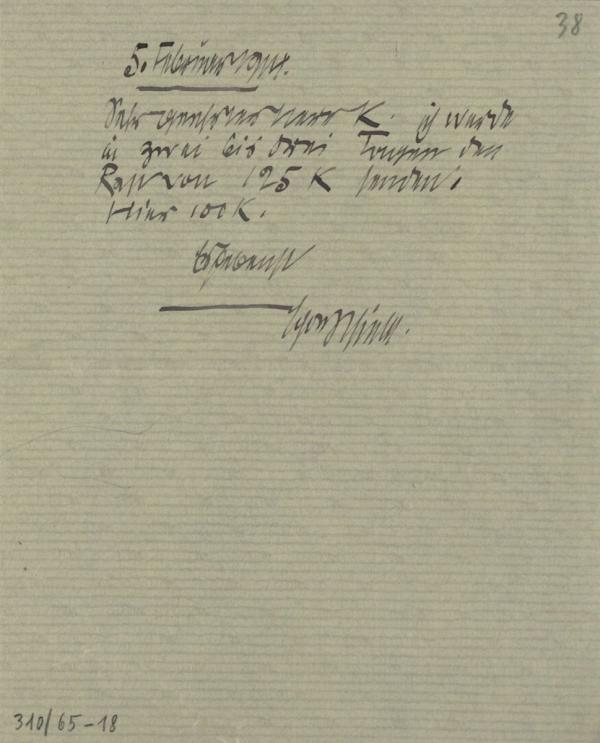 38
5. Februar 1914.
Sehr geehrter Herr K. ich werde
in zwei bis drei Tagen den
Rest von 125 K senden.
Hier 100 K.
Ergebenst
Egon Schiele.
310/65-18